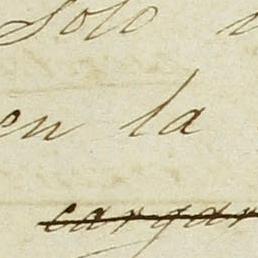 Solo
en la
cargar